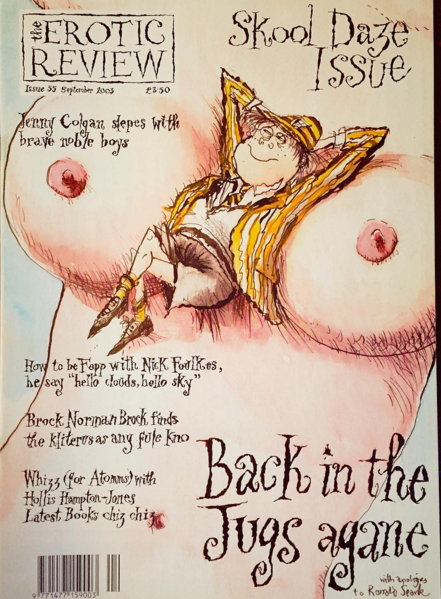 the EROTIC
REVIEW
Issue 55 September 2005 £3.50
Skool Daze
Issue
Jenny Colgan slepes with
brave noble boys
How to be Fopp with Nick Foulkes,
he say "hello clouds, hello sky"
Brock Norman Brock finds
the kliterus as any fule kno
Whizz (for Atomms) with
Hollis Hampton-Jones
Latest Books chiz chiz
Back in the
Jugs agane
with apologies
to Ronald Searle
9 771477 159003